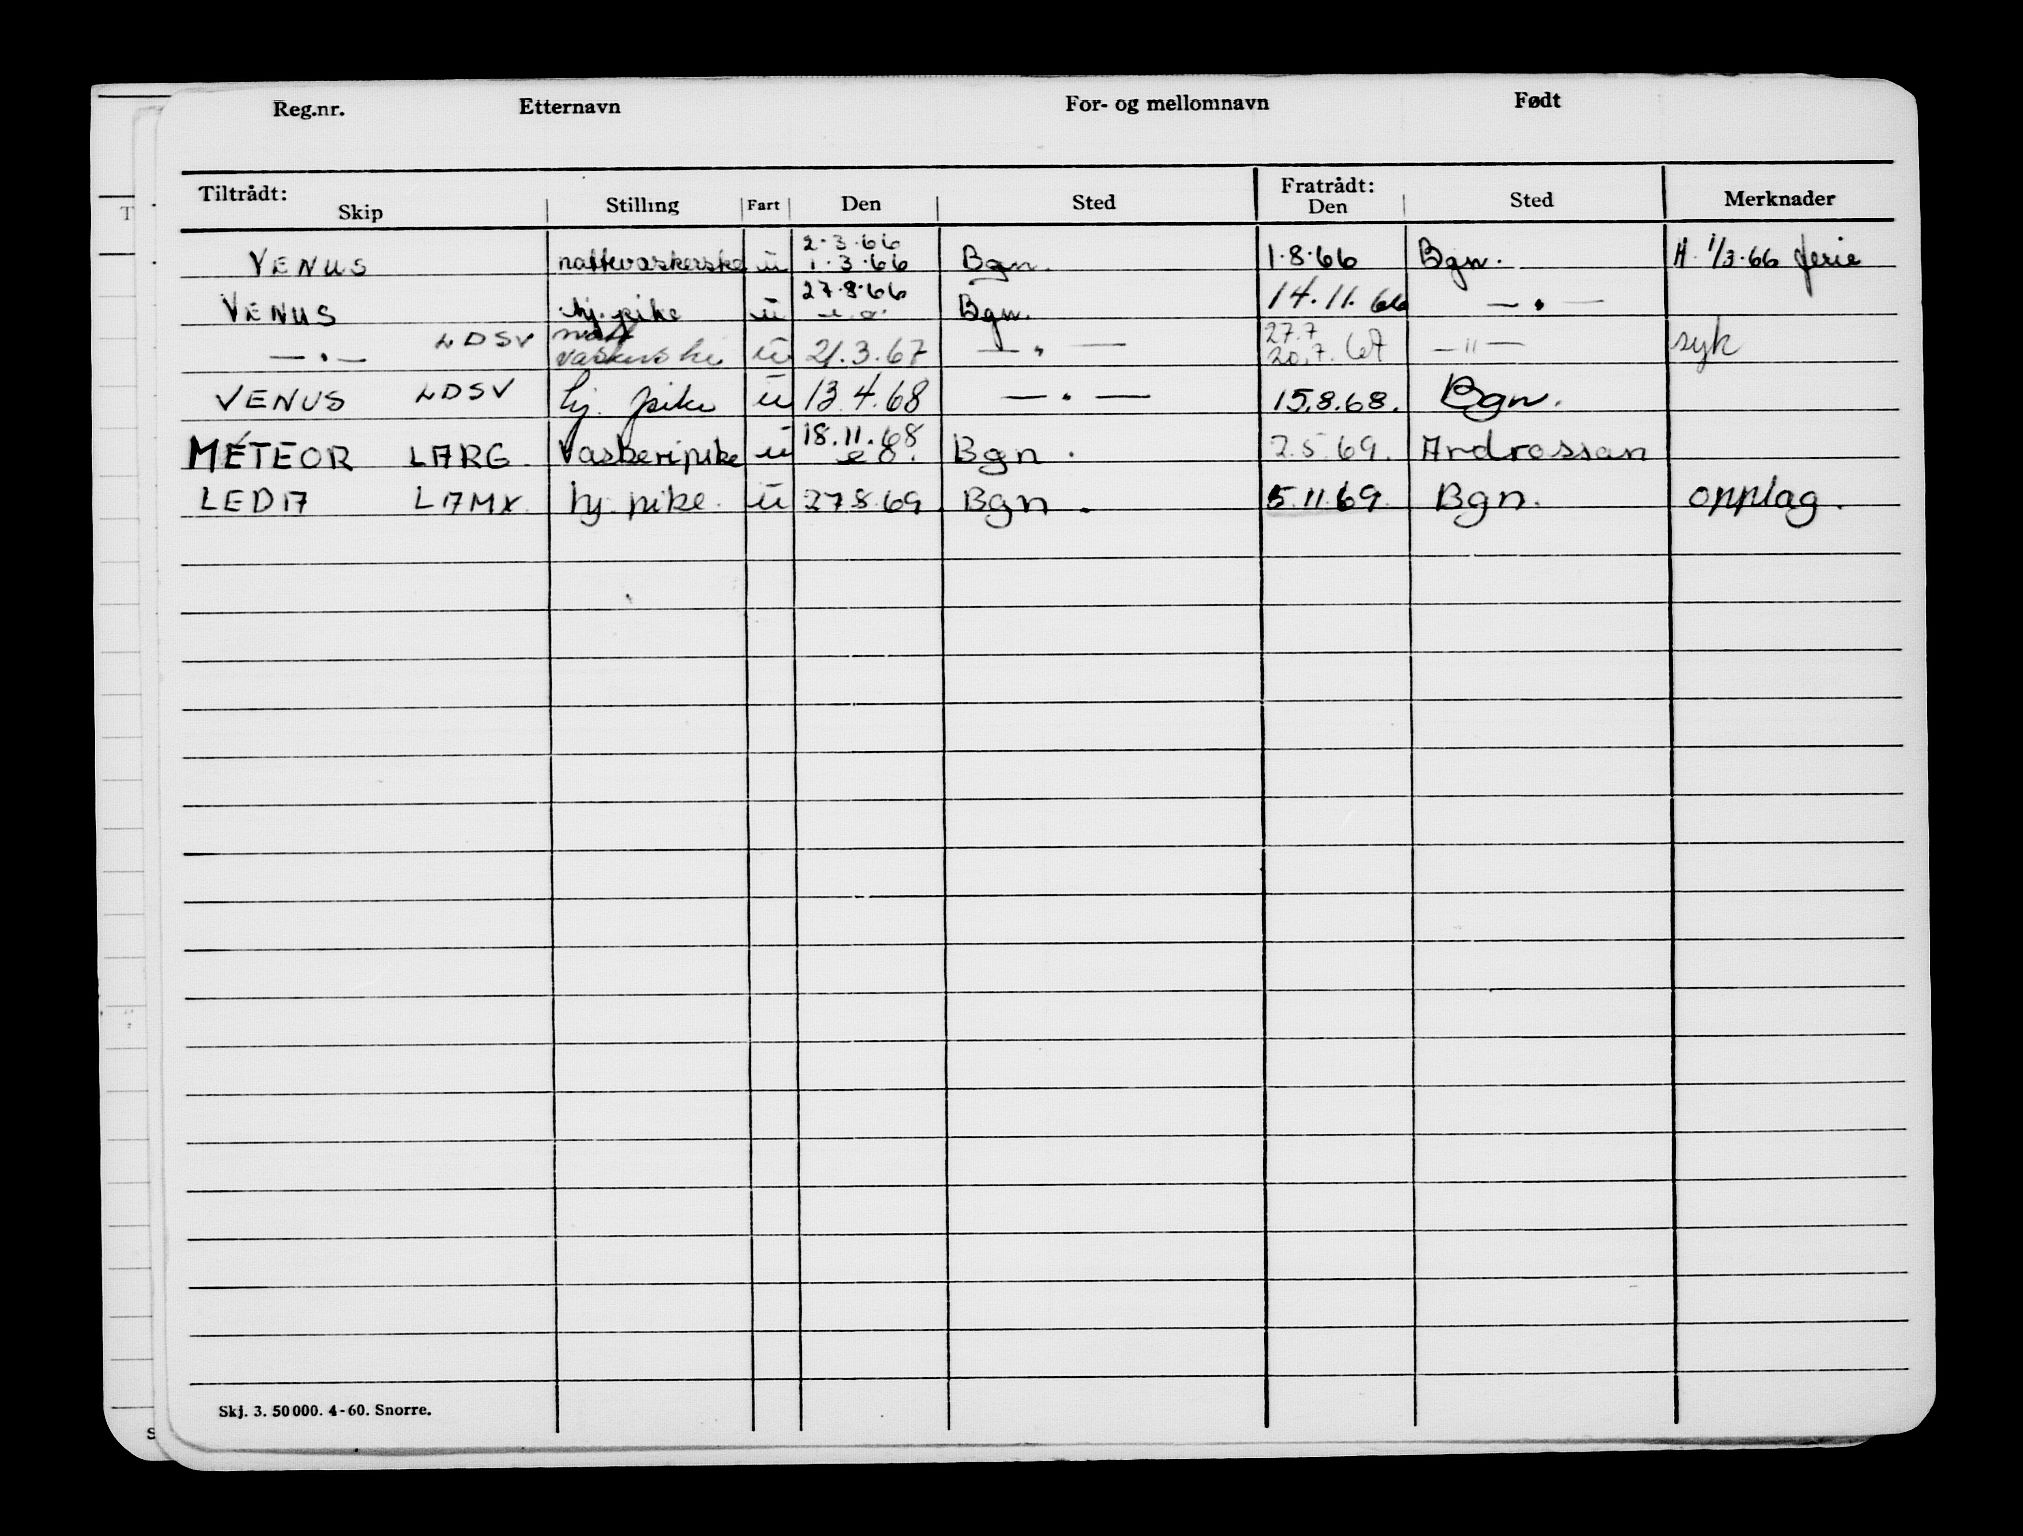 Reg.nr. Etternavn For- og mellomnavn Født
Tiltrådt: Fratrådt:
Skip Stilling Fart Den Sted Den Sted Merknader
2.3.66
VENUS nattevaskerske u 1.3.66 Bgn. 1.8.66 Bgn. H. 1/3.66 ferie
27.8.66
VENUS hj. pike u Bgn. 14.11.66 — " —
LDSV natt 27.7
— " — vaskerske u 21.3.67 — " — 20.7.67 — " — syk
VENUS LDSV hj. pike u 13.4.68 — " — 15.8.68. Bgn.
18.11.68
METEOR LARG. Vaskeripike u Bgn. 2.5.69. Ardrossan
LEDA LAMX. hj. pike. u 27.8.69. Bgn. 5.11.69. Bgn. opplag.
Skj. 3. 50 000. 4-60. Snorre.
T
S